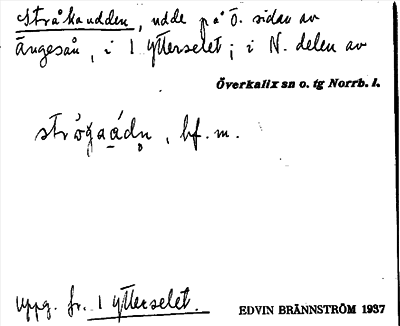 Stråkaudden, udde på Ö. sidan av
Ängesån, i 1 Ytterselet; i N. delen av
Överkalix sn o. tg Norrb. l.
bf. m.
uppg. fr. 1 Ytterselet.
EDVIN BRÄNNSTRÖM 1937